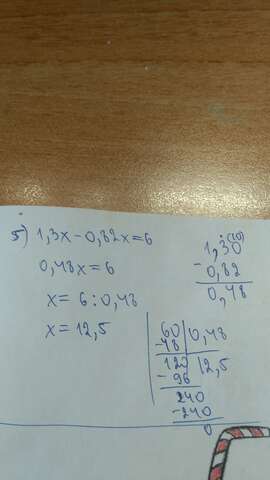 5) 1,3x - 0,82x = 6
0,48x = 6
x = 6 : 0,48
x = 12,5
(10)
1,30
- 0,82
0,48
60 | 0,48
- 48 | 12,5
120
- 96
240
- 240
0